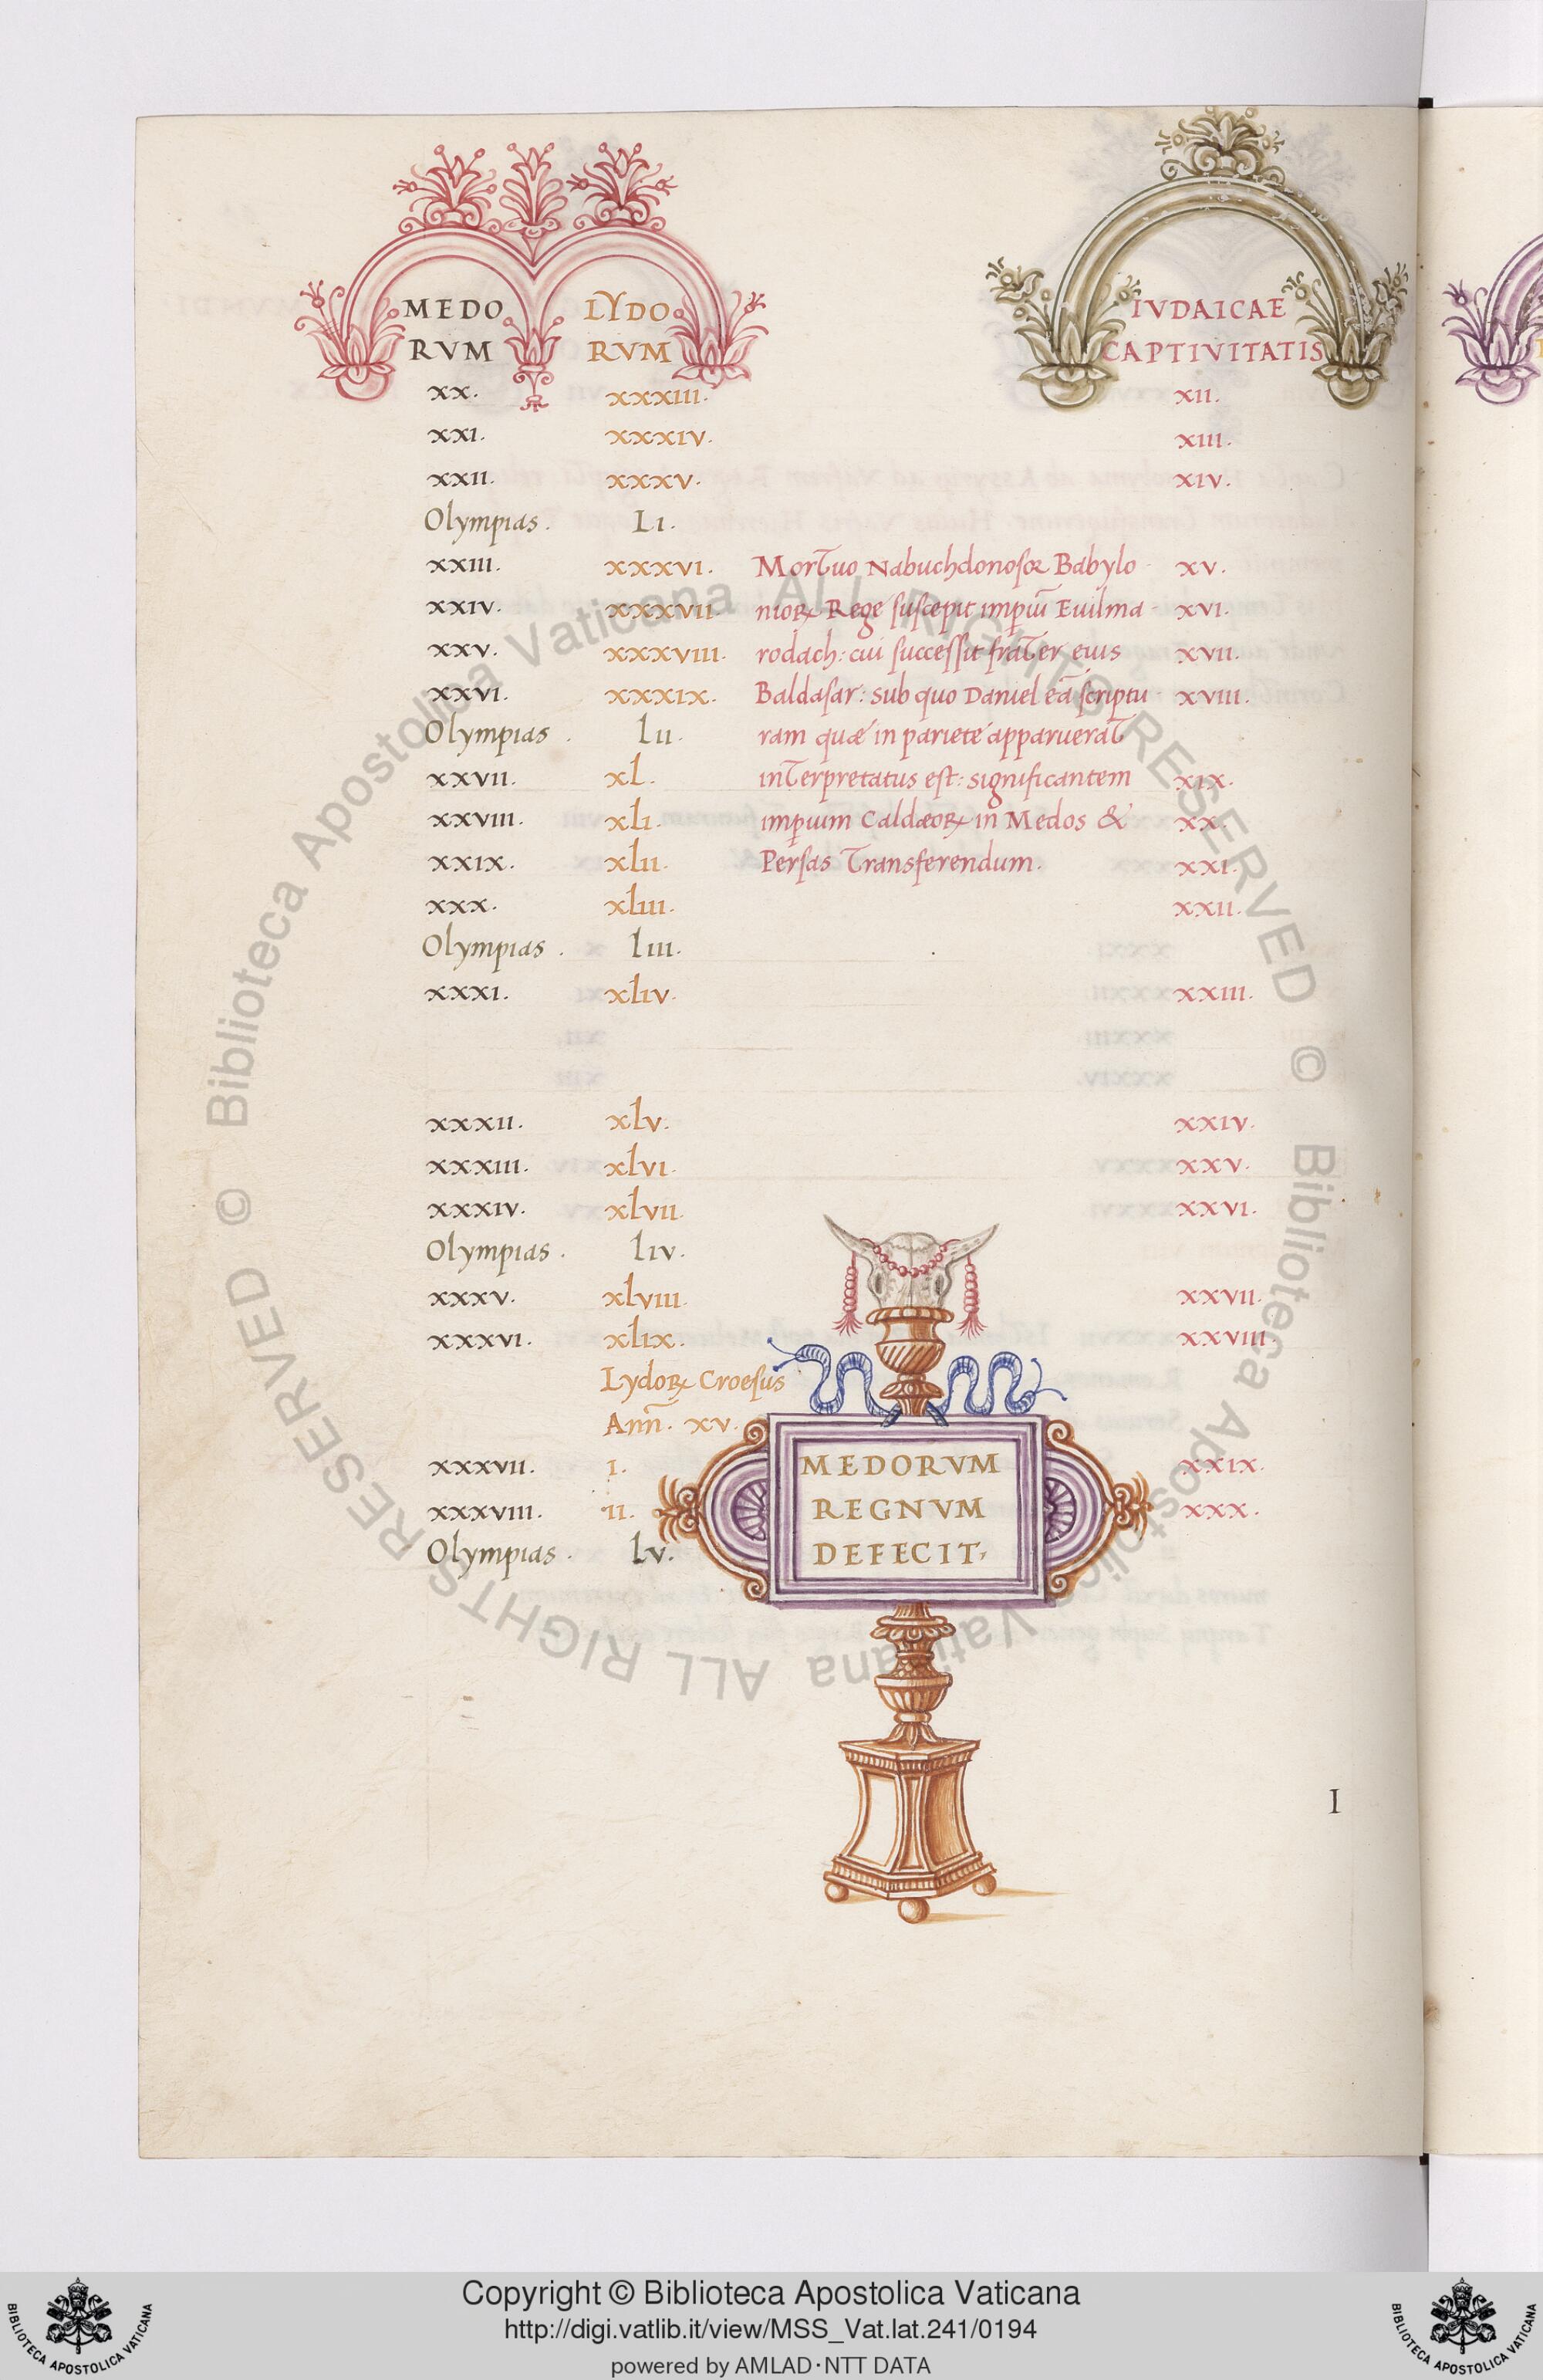 MEDO LYDO IVDAICAE
RVM RVM CAPTIVITATIS
xx. xxxiii. xii.
xxi. xxxiv. xiii.
xxii. xxxv. xiv.
Olympias. Li.
xxiii. xxxvi. Mortuo Nabuchdonosoꝝ Babylo- xv.
xxiv. xxxvii. nioꝝ Rege suscepit imp̱iū Euilma- xvi.
xxv. xxxviii. rodach: cui successit frater eius xvii.
xxvi. xxxix. Baldasar: sub quo Daniel eā scriptu- xviii.
Olympias. Lii. ram quæ in pariete apparuerat
xxvii. xl. interpretatus est: significantem xix.
xxviii. xli. imp̱ium Caldæoꝝ in Medos & xx.
xxix. xlii. Persas Transferendum. xxi.
xxx. xliii. xxii.
Olympias. Liii.
xxxi. xliv. xxiii.
xxxii. xlv. xxiv.
xxxiii. xlvi. xxv.
xxxiv. xlvii. xxvi.
Olympias. Liv.
xxxv. xlviii. xxvii.
xxxvi. xlix. xxviii.
Lydoꝝ Croesus
Ann̄. xv.
xxxvii. i. MEDORVM xxix.
xxxviii. ii. REGNVM xxx.
Olympias. Lv. DEFECIT,
I
© Biblioteca Apostolica Vaticana ALL RIGHTS RESERVED © Biblioteca Apostolica Vaticana ALL RIGHTS RESERVED
Copyright © Biblioteca Apostolica Vaticana
http://digi.vatlib.it/view/MSS_Vat.lat.241/0194
powered by AMLAD·NTT DATA
BIBLIOTECA APOSTOLICA VATICANA
BIBLIOTECA APOSTOLICA VATICANA